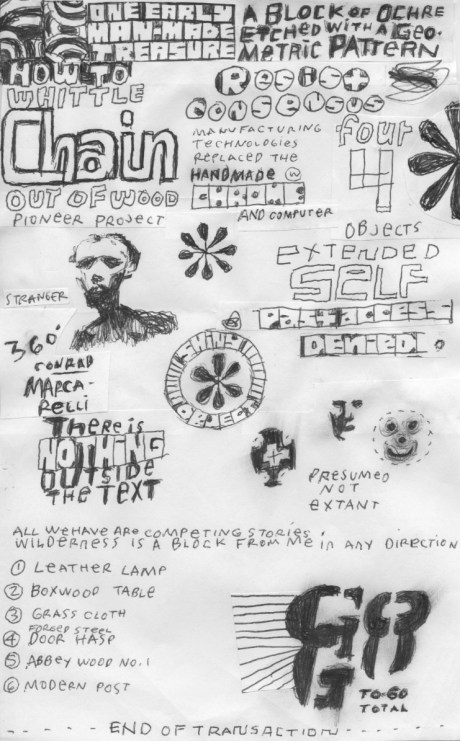 ONE EARLY
MAN-MADE
TREASURE
A BLOCK OF OCHRE
ETCHED WITH A GEO-
METRIC PATTERN
HOW TO
WHITTLE
Chain
OUT OF WOOD
PIONEER PROJECT
Resist
Consensus
MANUFACTURING
TECHNOLOGIES
REPLACED THE
HANDMADE W
AND COMPUTER
four
4
OBJECTS
STRANGER
EXTENDED
SELF
PASS ACCESS
DENIED!
360°
CONRAD
MARCA-
RELLI
SHINY
OBJECT
THERE IS
NOTHING
OUTSIDE
THE TEXT
PRESUMED
NOT
EXTANT
ALL WE HAVE ARE COMPETING STORIES.
WILDERNESS IS A BLOCK FROM ME IN ANY DIRECTION
① LEATHER LAMP
② BOXWOOD TABLE
③ GRASS CLOTH
FORGED STEEL
④ DOOR HASP
⑤ ABBEY WOOD NO. 1
⑥ MODERN POST
TO-GO
TOTAL
- - - - - END OF TRANSACTION - - - - -